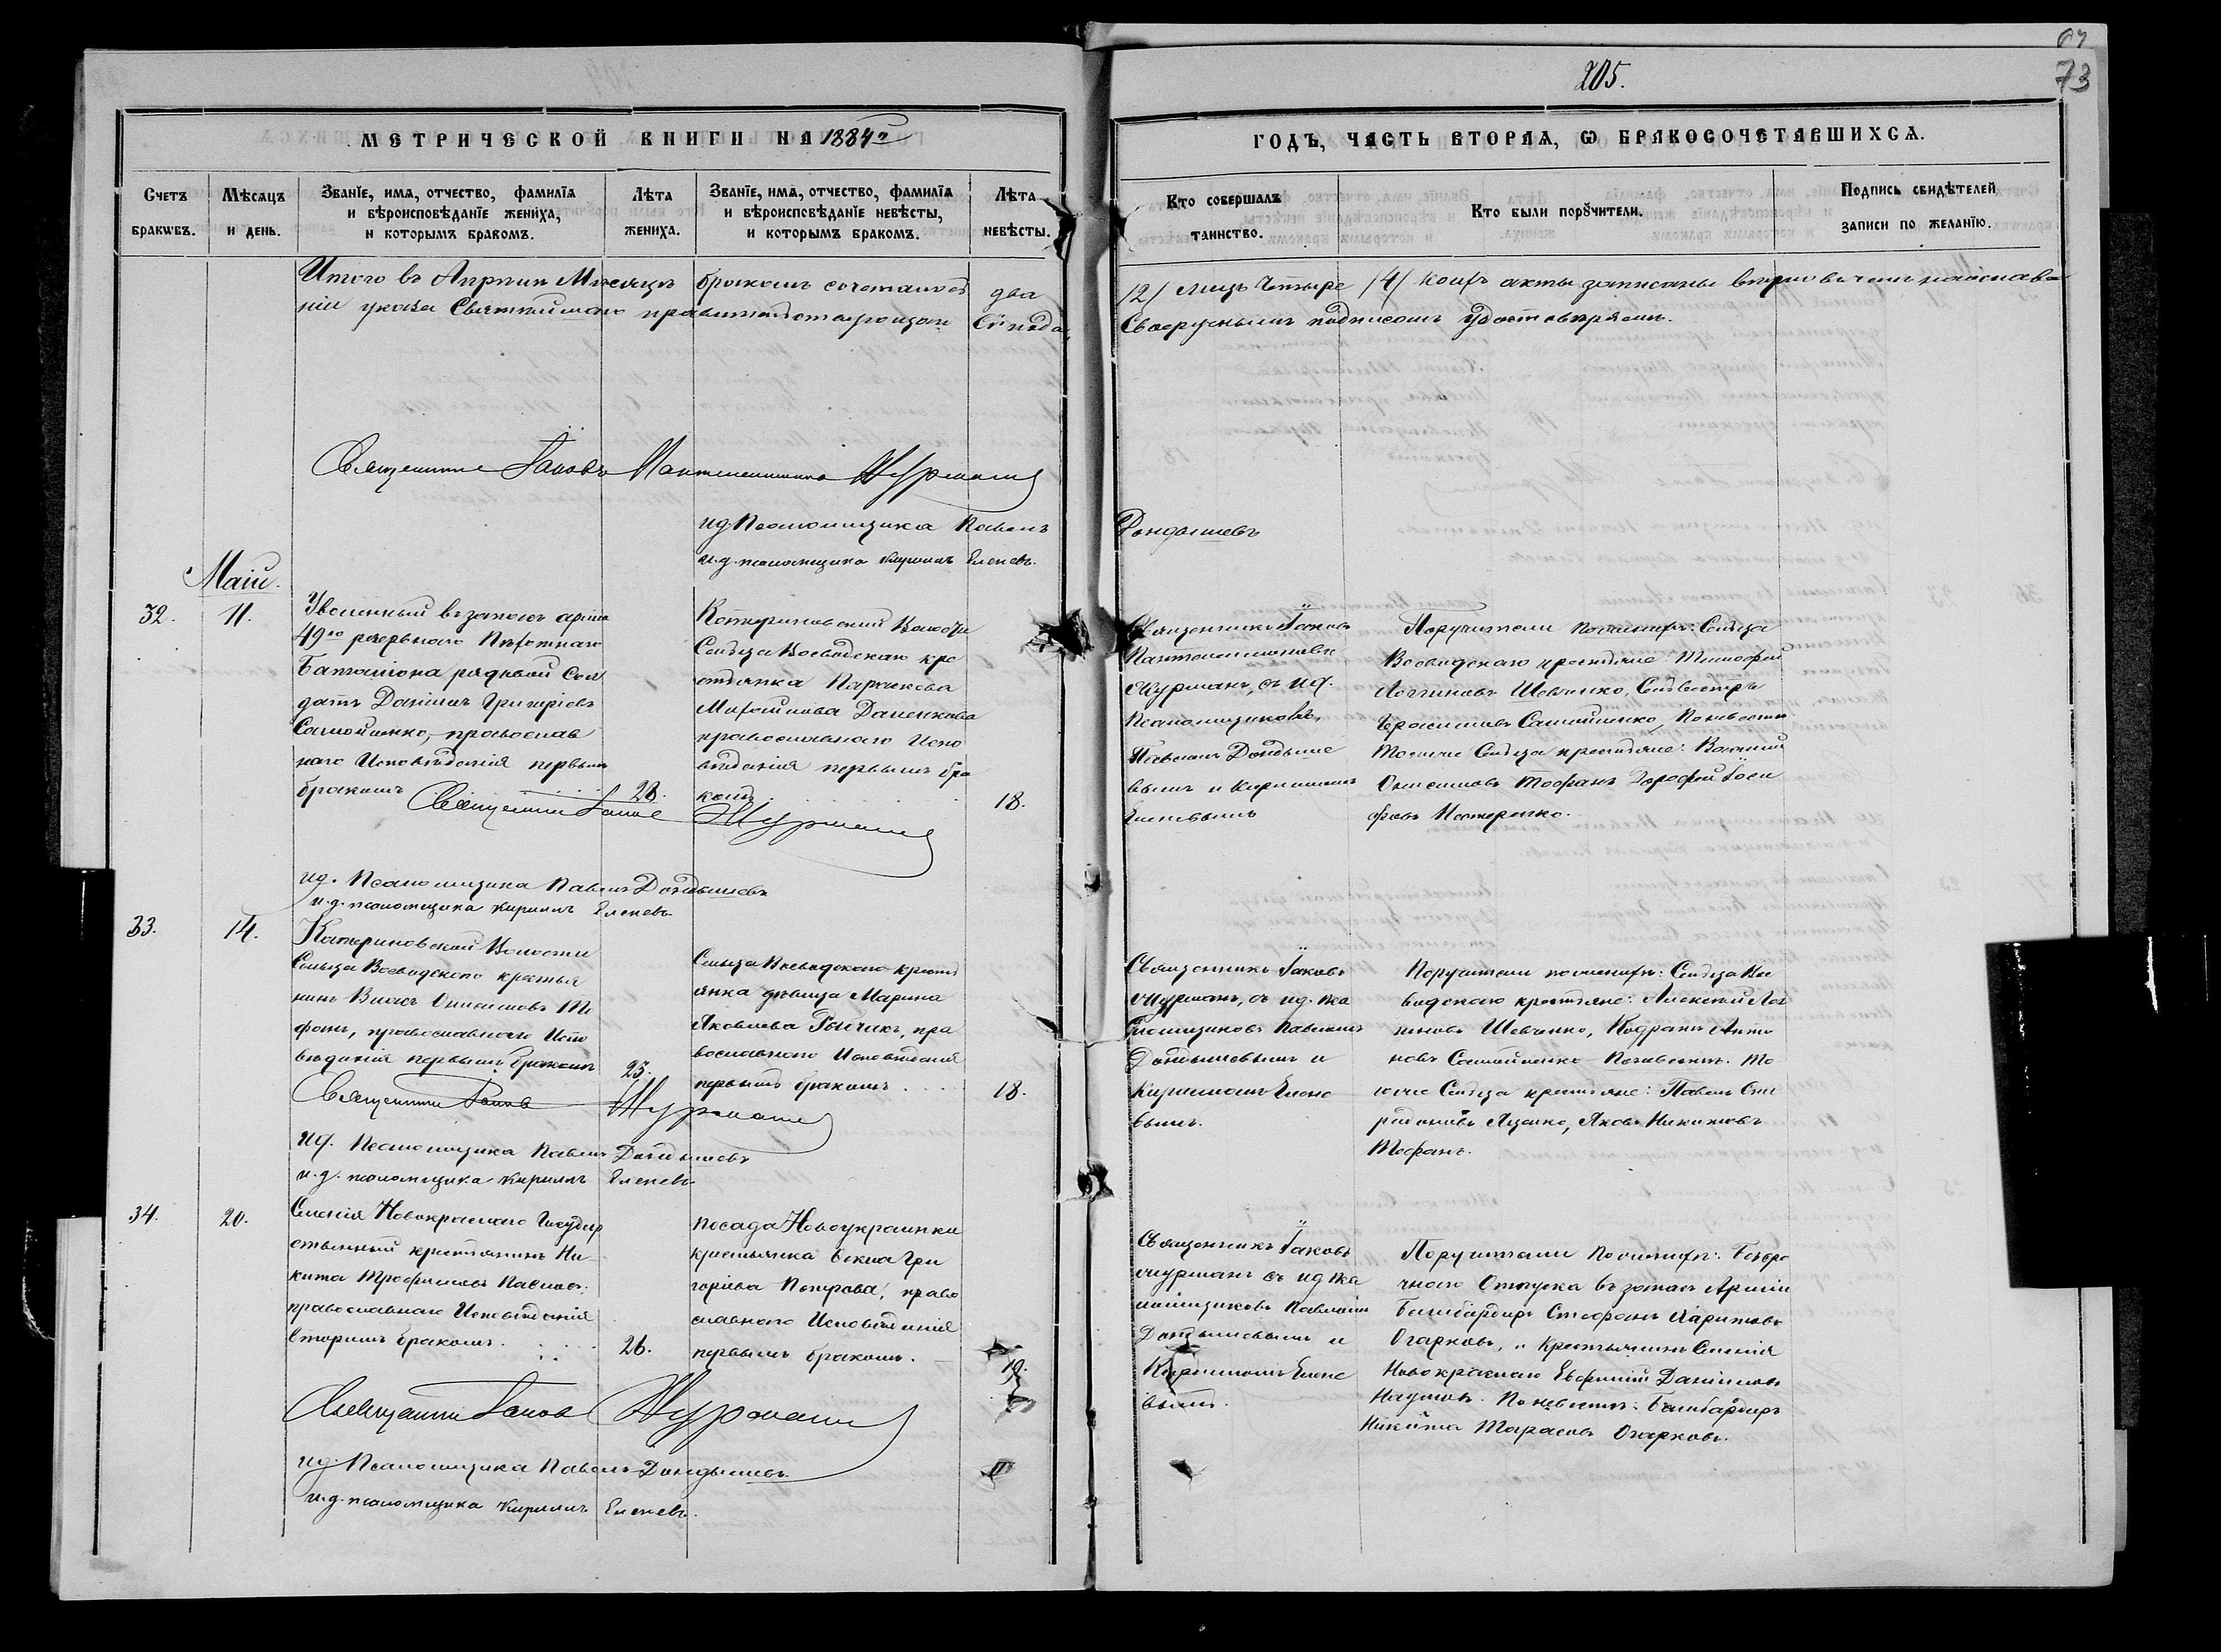 205.
73
МЕТРИЧЕСКОЙ КНИГИ НА 1884 г
ГОДЪ, ЧАСТЬ ВТОРАЯ, Ѡ БРАКОСОЧЕТАВШИХСѦ.
Счетъ браковъ.
Мѣсяцъ и день.
Званїе, имѧ, отчество, фамилїѧ
и вѣроисповѣданїе жениха,
и которымъ бракомъ.
Лѣта
жениха.
Званїе, имѧ, отчество, фамилїѧ
и вѣроисповѣданїе невѣсты,
и которымъ бракомъ.
Лѣта
невѣсты.
Кто совершалъ
таинство.
Кто были порꙋчители.
Подпись свидѣтелей
записи по желанїю.
Итого въ Апрѣли Мѣсяцѣ бракомъ сочетано два /2/ лицъ четыре /4/ коихъ акты записаны
указа Святѣйшаго Сѵнода, Своеручнымъ подписомъ удостовѣряемъ.
Священникъ Іаковъ Пантелеимоновъ Журманъ
ид. Псаломщика Павелъ Дондышевъ
и.д. псаломщика Кириллъ Еленевъ.
Маій.
32.
11.
Уволенный въ запасъ арміи
49го резервнаго Пѣхотнаго
Баталіона рядовой Сол
датъ Даніилъ Григоріевъ
Самойленко, православ
наго Исповѣданія первымъ
бракомъ
28.
Катериновской Волости
Сельца Воеводскаго кре
стьянка Параскева
Даненкова
православнаго Испо
вѣданія первымъ бра
комъ.
18.
Священникъ Іаковъ
Пантелеимоновъ
Журманъ, съ ид.
Псаломщиковъ,
Павломъ Дондыше
вымъ и Кирилломъ
Еленевымъ
Поручители по женихѣ: Сельца
Воеводскаго крестьяне: Тимофей
Логгиновъ Шевченко, Сильвестръ
Герасимовъ Самойленко, По невѣстѣ
Тогоже Сельца крестьяне: Василій
Онисимовъ Тофанъ Дорофей Іоси
фовъ Нестеренко.
Священникъ Іаковъ Журманъ
ид. Псаломщика Павелъ Дондышевъ
и.д. псаломщика Кириллъ Еленевъ
33.
14.
Катериновской Волости
Сельца Воеводскаго крестья
нинъ Власъ Онисимовъ То
фанъ, православнаго Испо
вѣданія первымъ бракомъ
23.
Сельца Воеводскаго кресть
янка дѣвица Марина
Яковлева Рыбчикъ, пра
вославнаго Исповѣданія
первымъ бракомъ
18.
Священникъ Іаковъ
Журманъ, съ ид. пса
ломщиковъ Павломъ
Дондышевымъ и
Кирилломъ Елене
вымъ.
Поручители по женихѣ: Сельца Вое
водскаго крестьяне: Алексѣй Лог
гиновъ Шевченко, Кодратъ Анто
новъ Самойленко По невѣстѣ. То
гоже Сельца крестьяне: Павелъ Спи
ридоновъ Яценко, Яковъ Никитовъ
Тофанъ.
Священникъ Іаковъ Журманъ
ид. Псаломщика Павелъ Дондышевъ
и.д. псаломщика Кириллъ Еленевъ
34.
20.
Селенія Новокраснаго Государ
ственный крестьянинъ Ни
кита Трофимовъ Павловъ.
православнаго Исповѣданія
вторымъ бракомъ.
26.
Посада Новоукраинки
крестьянка Гри
горіева Петрова, право
славнаго Исповѣданія
первымъ бракомъ.
19.
Священникъ Іаковъ
Журманъ съ ид пса
ломщиковъ Павломъ
Дондышевымъ и
Кирилломъ Елене
вымъ.
Поручители по женихѣ: Безсро
чнаго Отпуска въ запасъ Арміи
Бомбардиръ Стефанъ Харитовъ
Огарковъ, и крестьянинъ Селенія
Новокраснаго Евфимій Даніиловъ
Наумовъ. По невѣстѣ: Бомбардиръ
Никита Тарасовъ Огарковъ.
Священникъ Іаковъ Журманъ
ид. Псаломщика Павелъ Дондышевъ
и.д. псаломщика Кириллъ Еленевъ.